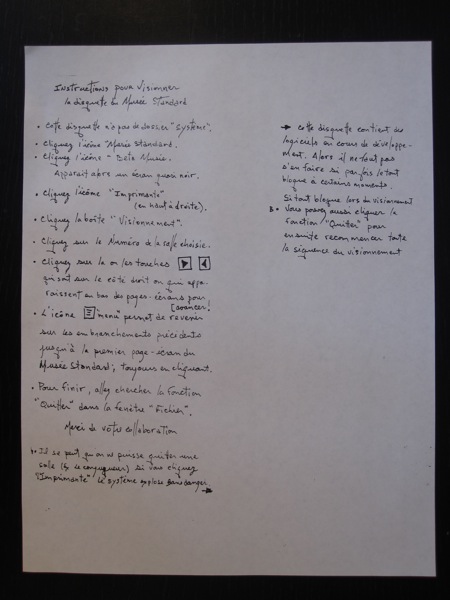 Instructions pour Visionner
la disquette du Musée Standard
• Cette disquette n'a pas de dossier "Système".
• Cliquez l'icône Musée Standard.
• Cliquez l'icône - Musée.
Apparaît alors un écran quasi noir.
• Cliquez l'icône "Imprimante"
(en haut à droite).
• Cliquez la boîte "Visionnement".
• Cliquez sur le Numéro de la salle choisie.
• Cliquez sur la ou les touches
qui sont sur le côté droit ou qui appa-
raissent en bas des pages-écrans pour
[avancer!
• L'icône "menu" permet de revenir
sur les embranchements précédents
jusqu'à la premier page-écran du
Musée Standard; toujours en cliquant.
• Pour finir, allez chercher la fonction
"Quitter" dans la fenêtre "Fichier".
Merci de votre collaboration
Il se peut qu'on ne puisse quitter une
salle si vous cliquez
"Imprimante" le système explose sans danger
→
→ Cette disquette contient des
logiciels en cours de développe-
ment. Alors il ne faut pas
s'en faire si parfois le tout
bloque à certains moments.
Si tout bloque lors du visionnement
B • Vous pouvez aussi cliquer la
fonction "Quitter" pour
ensuite recommencer toute
la séquence du visionnement